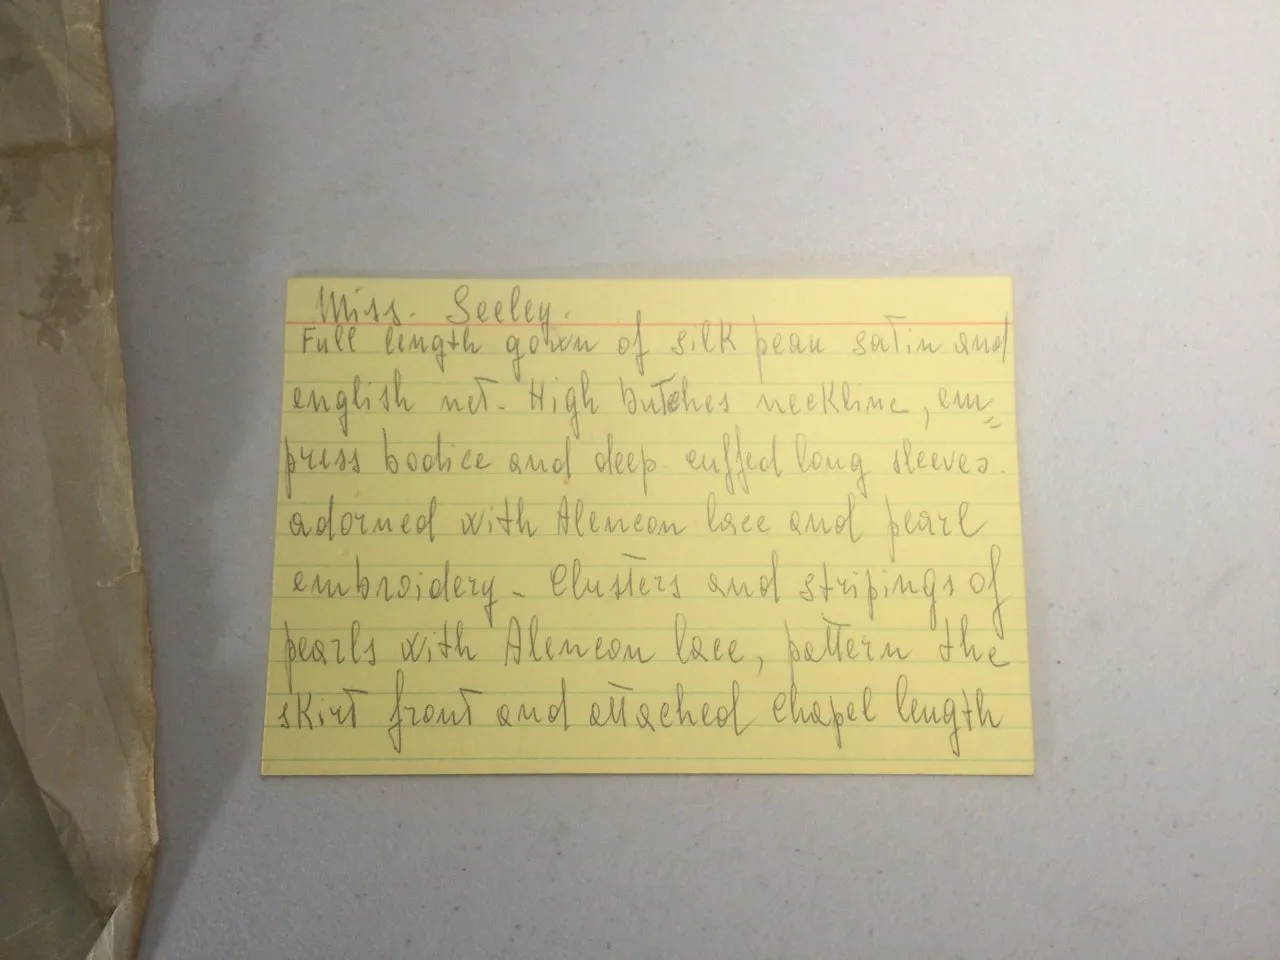 Miss. Seeley.
Full length gown of silk peau satin and
english net. High dutches neckline, em=
press bodice and deep cuffed long sleeves.
adorned with Alencon lace and pearl
embroidery - Clusters and stripings of
pearls with Alencon lace, pattern the
skirt front and attached chapel length